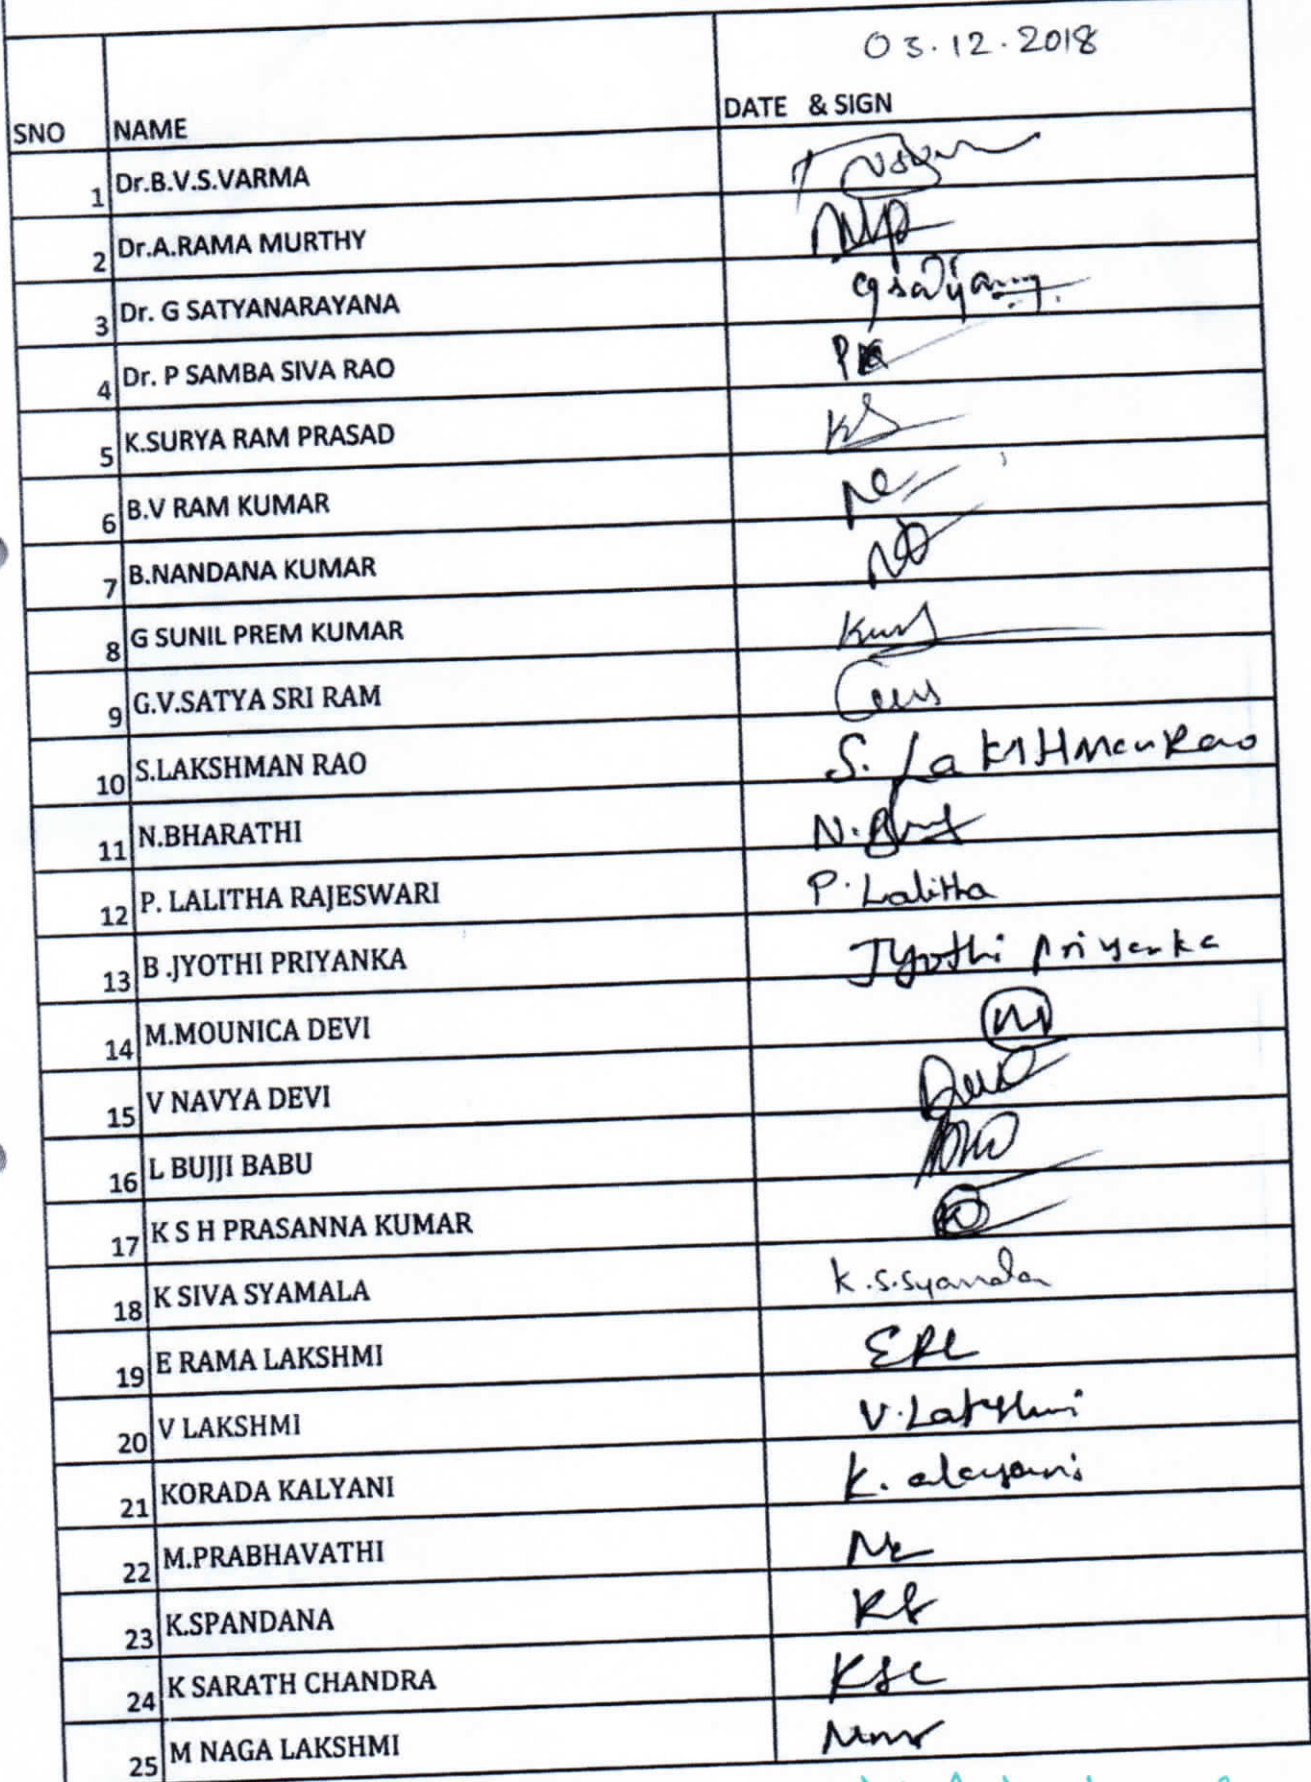 03.12.2018
SNO NAME DATE & SIGN
1 Dr.B.V.S.VARMA
2 Dr.A.RAMA MURTHY
3 Dr. G SATYANARAYANA
4 Dr. P SAMBA SIVA RAO
5 K.SURYA RAM PRASAD KS
6 B.V RAM KUMAR
7 B.NANDANA KUMAR
8 G SUNIL PREM KUMAR
9 G.V.SATYA SRI RAM
10 S.LAKSHMAN RAO S. LakSHManRao
11 N.BHARATHI N.
12 P. LALITHA RAJESWARI P. Lalitha
13 B .JYOTHI PRIYANKA Jyothi Priyanka
14 M.MOUNICA DEVI
15 V NAVYA DEVI
16 L BUJJI BABU
17 K S H PRASANNA KUMAR
18 K SIVA SYAMALA K.S.Syamala
19 E RAMA LAKSHMI ERL
20 V LAKSHMI V.Lakshmi
21 KORADA KALYANI K.
22 M.PRABHAVATHI
23 K.SPANDANA KS
24 K SARATH CHANDRA KSC
25 M NAGA LAKSHMI